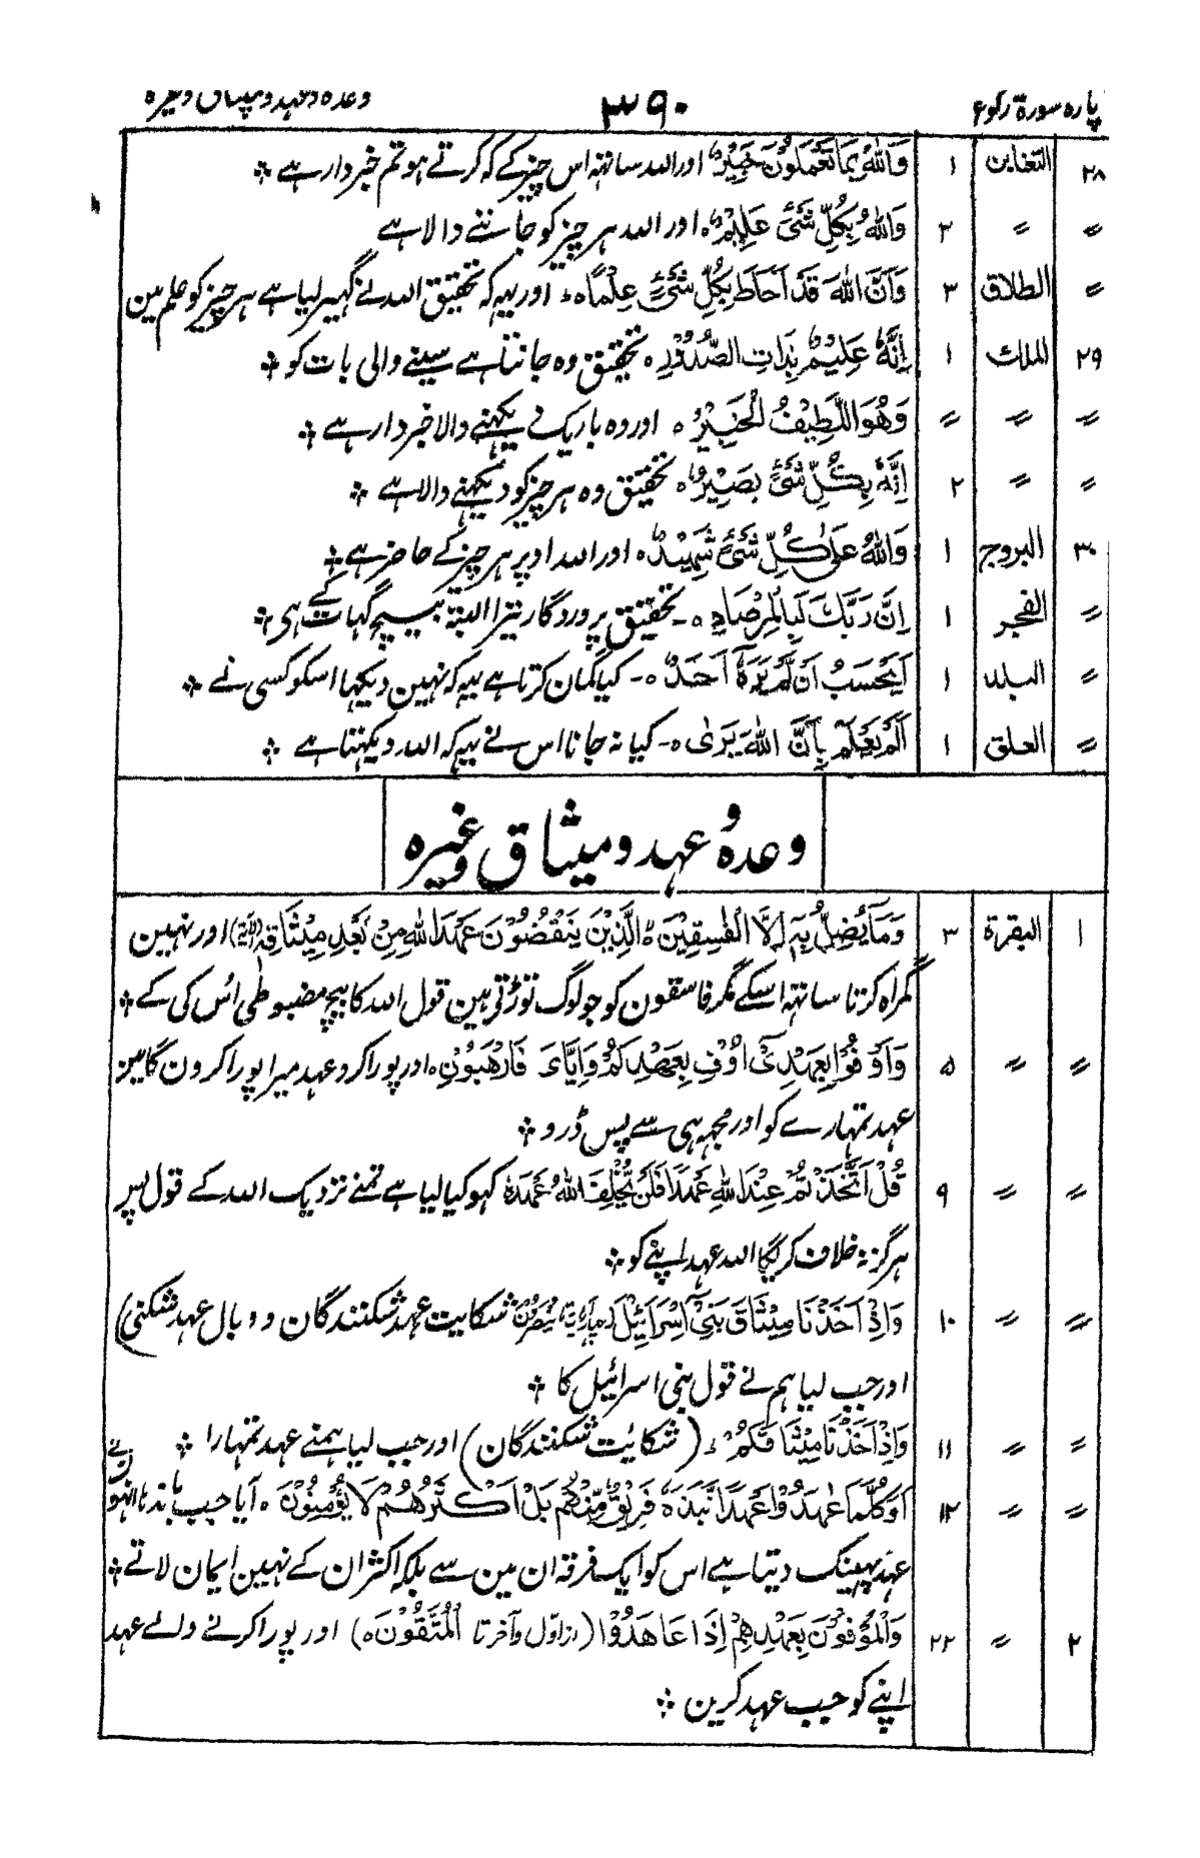 پارہ سورۃ رکوع ۳۹۰ وعدہ و عہد و میثاق وغیرہ
۲۸ التغابن ۱ وَاللّٰهُ بِمَا تَعْمَلُوْنَ خَبِيْرٌ اور اللہ ساتھ اس چیز کے کہ کرتے ہو تم خبردار ہے ؞
〃 〃 ۲ وَاللّٰهُ بِكُلِّ شَىْءٍ عَلِيْمٌ ہ اور اللہ ہر چیز کو جاننے والا ہے
〃 الطلاق ۳ وَاَنَّ اللّٰهَ قَدْ اَحَاطَ بِكُلِّ شَىْءٍ عِلْمًا ہ اور یہہ کہ تحقیق اللہ نے گھیر لیا ہے ہر چیز کو علم مین
۲۹ الملک ۱ اِنَّهٗ عَلِيْمٌۢ بِذَاتِ الصُّدُوْرِ ہ تحقیق وہ جانتا ہے سینے والی بات کو ؞
〃 〃 〃 وَهُوَ اللَّطِيْفُ الْخَبِيْرُ ہ اور وہ باریک دیکہنے والا خبردار ہے ؞
〃 〃 ۲ اِنَّهٗ بِكُلِّ شَىْءٍ بَصِيْرٌ ہ تحقیق وہ ہر چیز کو دیکہنے والا ہے ؞
۳۰ البروج ۱ وَاللّٰهُ عَلٰى كُلِّ شَىْءٍ شَهِيْدٌ ہ اور اللہ اوپر ہر چیز کے حاضر ہے ؞
〃 الفجر ۱ اِنَّ رَبَّكَ لَبِالْمِرْصَادِ ہ - تحقیق پروردگار تیرا البتہ بیچ گہات کے ہی ؞
〃 البلد ۱ اَيَحْسَبُ اَنْ لَّمْ يَرَهٗ اَحَدٌ ہ - کیا گمان کرتا ہے یہہ کہ نہین دیکہا اسکو کسی نے ؞
〃 العلق ۱ اَلَمْ يَعْلَمْ بِاَنَّ اللّٰهَ يَرٰى ہ - کیا نہ جانا اس نے یہہ کہ اللہ دیکہتا ہے ؞
وعدہ و عہد و میثاق وغیرہ
۱ البقرۃ ۳ وَمَا يُضِلُّ بِهٖ اِلَّا الْفٰسِقِيْنَ الَّذِيْنَ يَنْقُضُوْنَ عَهْدَ اللّٰهِ مِنْ بَعْدِ مِيْثَاقِهٖ (الآیہ) اور نہین
گمراہ کرتا ساتہہ اسکے مگر فاسقون کو جو لوگ توڑتے ہین قول اللہ کا پیچہے مضبوطی اُس کی کے ؞
〃 〃 ۵ وَاَوْفُوْا بِعَهْدِىْۤ اُوْفِ بِعَهْدِكُمْ وَاِيَّاىَ فَارْهَبُوْنِ ہ اور پورا کرو عہد میرا پورا کرون گا مین
عہد تمہارے کو اور مجہہ ہی سے پس ڈرو ؞
〃 〃 ۹ قُلْ اَتَّخَذْتُمْ عِنْدَ اللّٰهِ عَهْدًا فَلَنْ يُّخْلِفَ اللّٰهُ عَهْدَهٗ کہو کیا لیا ہے تمنے نزدیک اللہ کے قول پس
ہرگز نہ خلاف کریگا اللہ عہد اپنے کو ؞
〃 〃 ۱۰ وَاِذْ اَخَذْنَا مِيْثَاقَ بَنِىْۤ اِسْرَآئِيْلَ شکایت عہد شکنندگان و وبال عہد شکنی)
اور جب لیا ہم نے قول بنی اسرائیل کا ؞
〃 〃 ۱۱ وَاِذْ اَخَذْنَا مِيْثَاقَكُمْ (شکایت شکنندگان) اور جب لیا ہمنے عہد تمہارا ؞
〃 〃 ۱۲ اَوَكُلَّمَا عٰهَدُوْا عَهْدًا نَّبَذَهٗ فَرِيْقٌ مِّنْهُمْ بَلْ اَكْثَرُهُمْ لَا يُؤْمِنُوْنَ ہ آیا جب باندہا انہون نے
عہد پہینک دیتا ہے اس کو ایک فرقہ ان مین سے بلکہ اکثر ان کے نہین ایمان لاتے ؞
۲ 〃 ۲۲ وَالْمُوْفُوْنَ بِعَهْدِهِمْ اِذَا عَاهَدُوْا (از اول و آخر تا الْمُتَّقُوْنَ ہ) اور پورا کرنے والے عہد
اپنے کو جب عہد کرین ؞